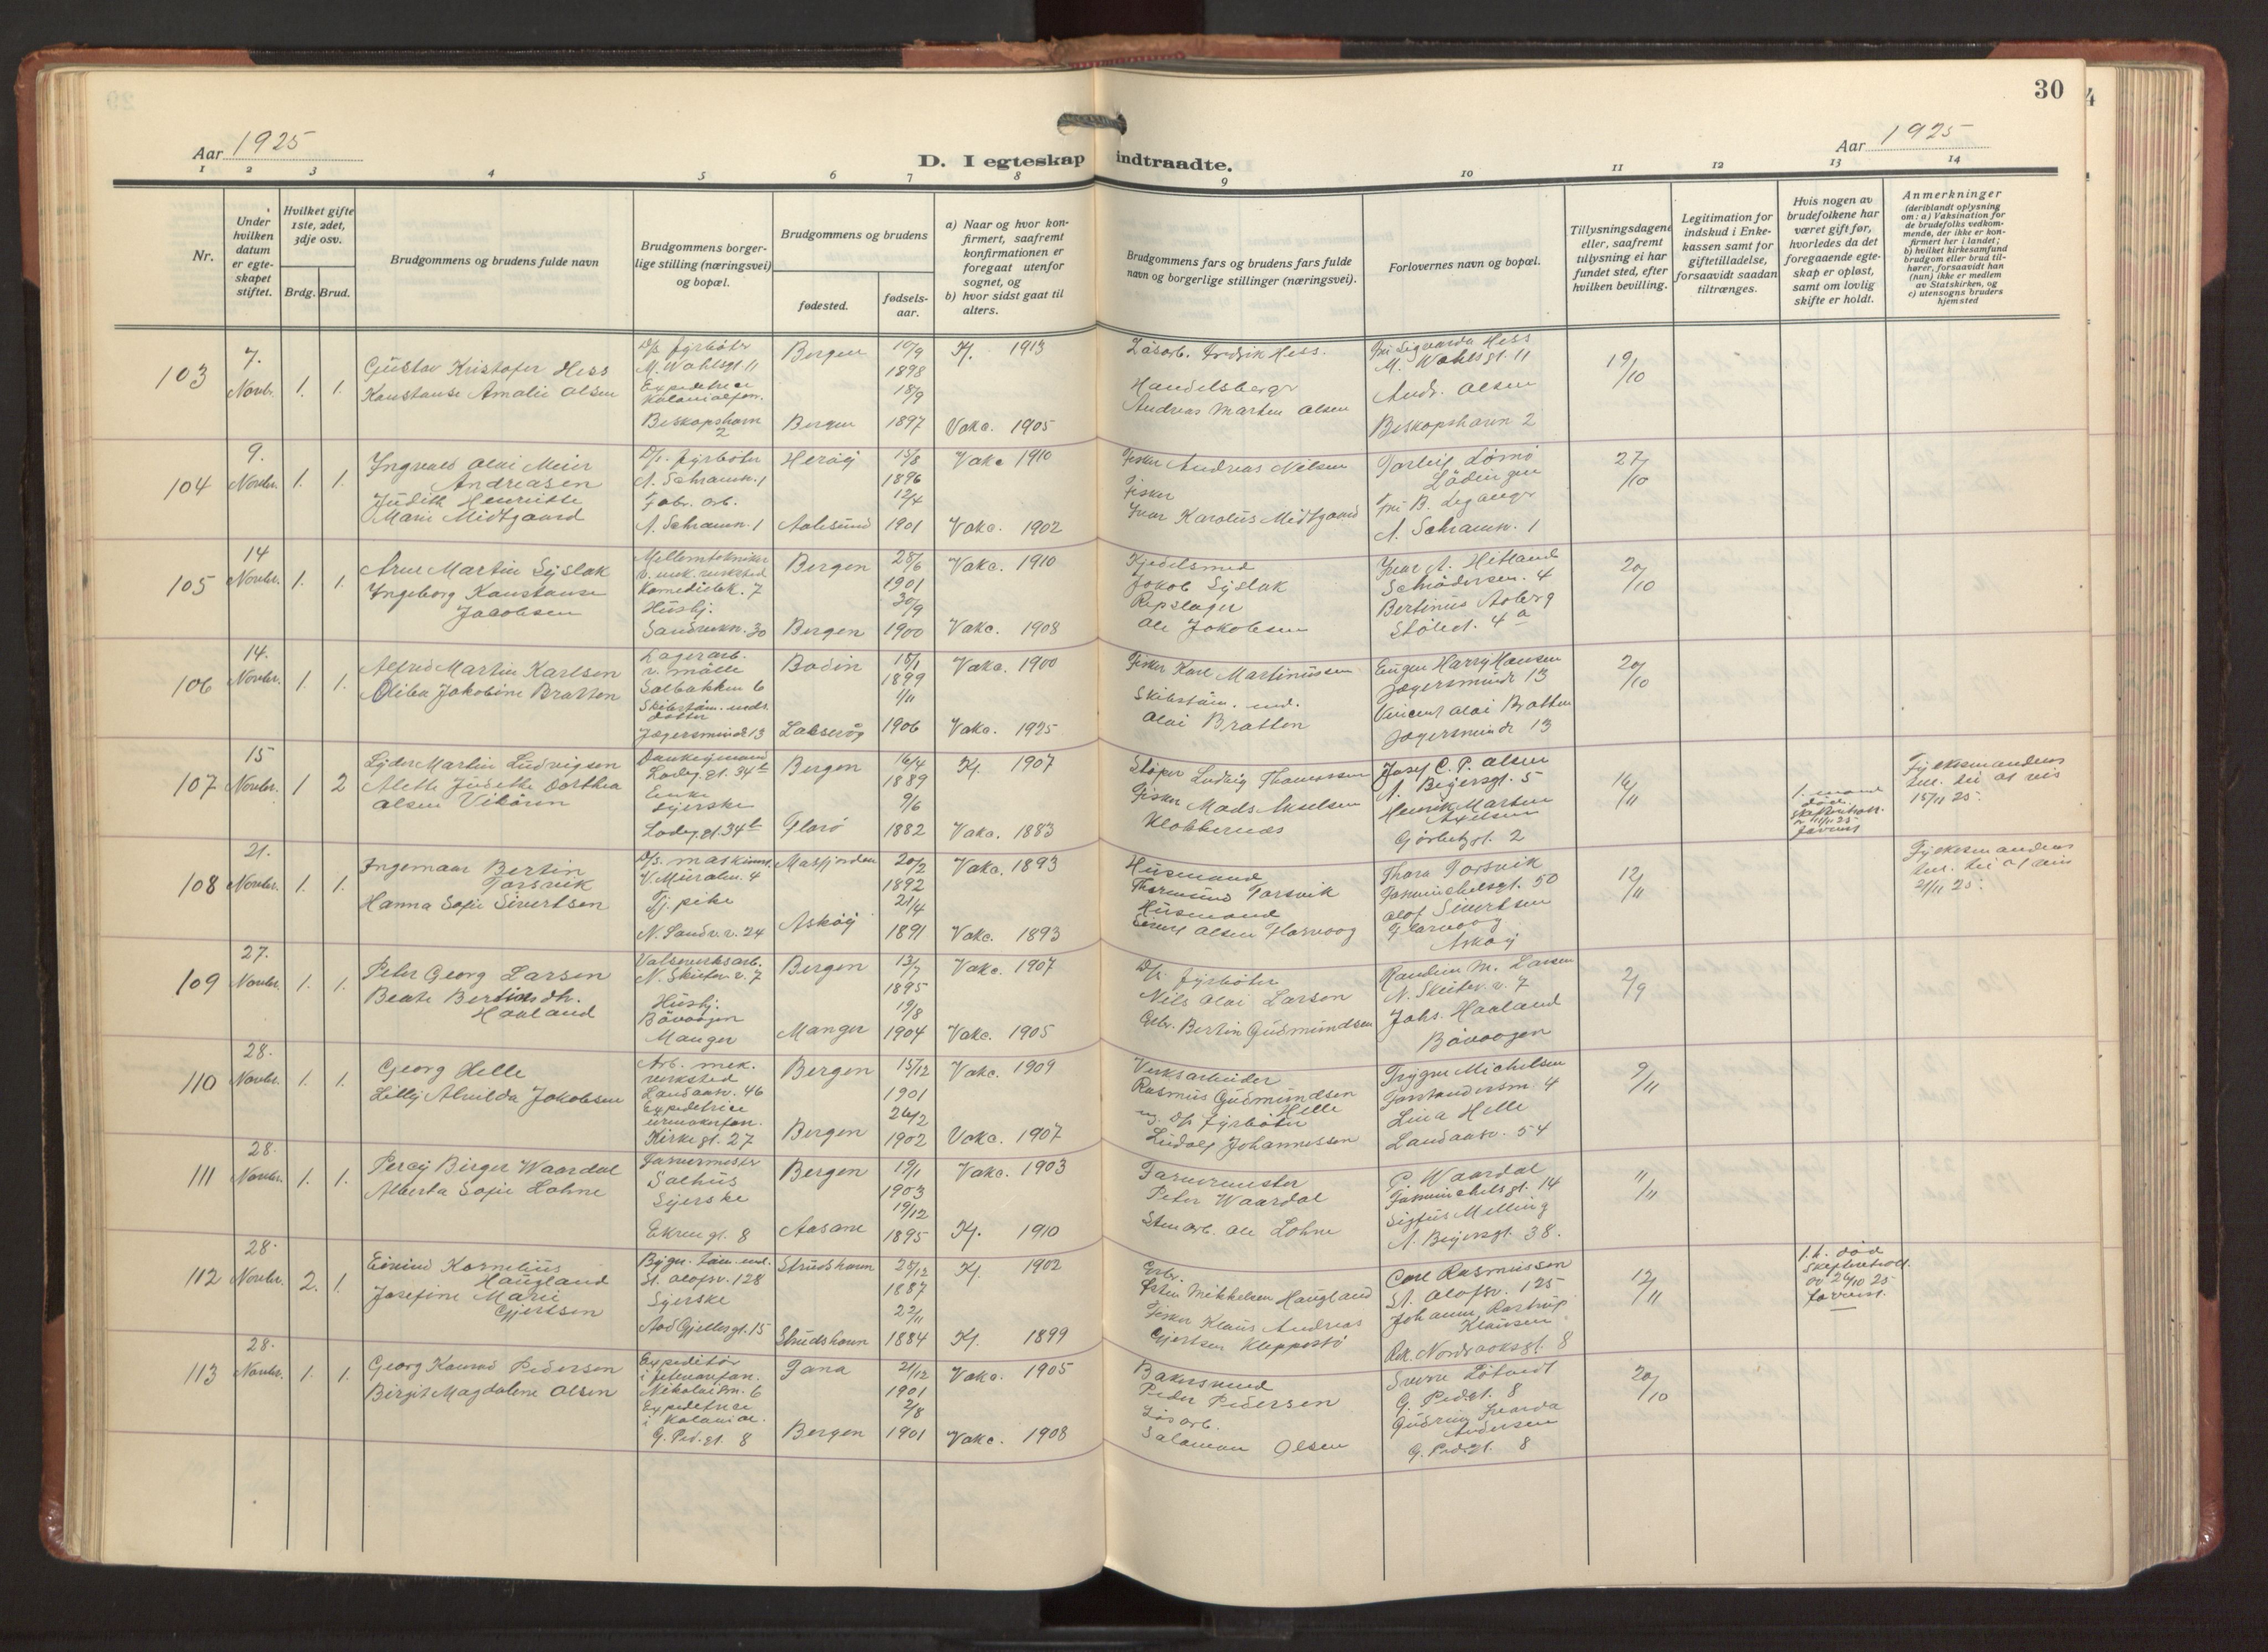 30
Aar 1925
Aar 1925
D. I egteskap indtraadte.
1 2 3 4 5 6 7 8 9 10 11 12 13 14
Nr.
Under
hvilken
datum
er egte-
skapet
stiftet.
Hvilket gifte
1ste, 2det,
3dje osv.
Brdg. Brud.
Brudgommens og brudens fulde navn
Brudgommens borger-
lige stilling (næringsvei)
og bopæl.
Brudgommens og brudens
fødested.
fødsels-
aar.
a) Naar og hvor kon-
firmert, saafremt
konfirmationen er
foregaat utenfor
sognet, og
b) hvor sidst gaat til
alters.
Brudgommens fars og brudens fars fulde
navn og borgerlige stillinger (næringsvei).
Forlovernes navn og bopæl.
Tillysningsdagene
eller, saafremt
tillysning ei har
fundet sted, efter
hvilken bevilling.
Legitimation for
indskud i Enke-
kassen samt for
giftetilladelse,
forsaavidt saadan
tiltrænges.
Hvis nogen av
brudefolkene har
været gift før,
hvorledes da det
foregaaende egte-
skap er opløst,
samt om lovlig
skifte er holdt.
Anmerkninger
(deriblandt oplysning
om: a) Vaksination for
de brudefolks vedkom-
mende, der ikke er kon-
firmert her i landet;
b) hvilket kirkesamfund
brudgom eller brud til-
hører, forsaavidt han
(hun) ikke er medlem
av Statskirken, og
c) utensogns bruders
hjemsted
103
7.
Novbr. 1. 1.
Gustav Kristofer Hess
Konstanse Amalie Olsen
D/s fyrbøter
M. Wahlsgt 11
Expeditrice
Kolonialfor.
Beskopshavn
2
Bergen
Bergen
10/9
1898
18/9
1897
Kf. 1913
Vakc. 1905
Løsarb. Fredrik Hess.
Handelsborgr
Andreas Marten Olsen
Fru Sigvarda Hess
M. Wahlsgt. 11
Andr. Olsen
Beskopshavn 2
19/10
104
9.
Novbr. 1. 1.
Ingvald Olai Meier
Andreasen
Judith Henriette
Marie Midtgaard
D/s. fyrbøter
A. Schramn. 1
Fabr. arb.
A. Schramn. 1
Herøy
Aalesund
15/8
1896
12/4
1901
Vakc 1910
Vakc. 1902
Fisker Andreas Nilsen
Fisker
Ivar Karolus Midtgaard
Torleif Lømo
Lødingen
Fru B. Leganger
A. Schramn. 1
27/10
105
14
Novbr. 1. 1.
Arne Martin Lyslak
Ingeborg Konstanse
Jacobsen
Mellemtekniker
v. mek. verksted
Komediebk. 7
Husbj.
Sandvikn. 30
Bergen
Bergen
28/6
1901
30/9
1900
Vakc. 1910
Vakc. 1908
Kjedelsmed
Jakob Lyslak
Repslager
Ole Jakobsen
Ivar A. Hitland
Schrødersen. 4
Bertinus Aaberg
Støled. 4 a
20/10
106
14.
Novbr. 1. 1.
Alfred Martin Karlsen
Oliba Jakobine Bratten
Lagerarb.
v. mølle
Solbakken 6
Skibstøm. mds.
datter
Jægersminde 13
Bodin
Laksevåg
15/1
1899
1/11
1906
Vakc. 1900
Vakc. 1925
Fisker Karl Martinussen
Skibstøm. md.
Olai Bratten
Eugen Harry Hansen
Jægersminde 13
Vincent Olai Bratten
Jægersminde 13
20/10
107
15
Novbr. 1 2
Lyder Martin Ludvigsen
Alette Judithe Dorthea
Olsen Vikøren
Dankeymand
Lodeg.gt. 34 b
Enke
syerske
Lodeg.gt. 34 b
Bergen
Florø
16/4
1889
9/6
1882
Kf. 1907
Vakc. 1883
Støper Ludvig Thomassen
Fisker Mads Akselsen
Klobbernes
Josef C. P. Olsen
A. Beyersgt. 5
Henrik Marten
Axelsen
Gørbitzgt. 2
16/11
1. mand
død.
Skifteattest.
v. 11/11 25
forevist
Fylkesmandens
bev. til at vies
15/11 25.
108
21.
Novbr. 1. 1.
Ingemar Bertin
Torsvik
Hanna Sofie Sivertsen
D/s. maskinmst.
V. Muralm. 4
Tj. pike
N. Sandv.v. 24
Masfjorden
Askøy
20/2
1892
21/4
1891
Vakc. 1893
Vakc. 1893
Husmand
Thormund Torsvik
Husmand
Sivert Olsen Florvoog
Thora Torsvik
Formichelsgt. 50
Olaf Sivertsen
Florvoog
Askøy
12/11
Fylkesmandens
bev. til at vies
21/11 25.
109
27.
Novbr. 1. 1.
Peter Georg Larsen
Beate Bertinsdtr.
Haaland
Valseverksarb.
N. Skiten. v. 7
Husbj.
Bøvaagen
Manger
Bergen
Manger
13/7
1895
19/8
1904
Vakc. 1907
Vakc. 1905
D/s. fyrbøter
Nils Olai Larsen
Gbr. Bertin Gudmundsen
Randine M. Larsen
N. Skiten. v. 7
Johs. Haaland
Bøvaagen
2/9
110
28.
Novbr. 1. 1.
Georg Helle
Lilly Alvilda Jakobsen
Arb. mek.
verksted
Landaasv. 46
Expeditrice
urmakerfor.
Kirkegt. 27
Bergen
Bergen
15/12
1901
26/2
1902
Vakc. 1909
Vakc. 1907
Verksarbeider
Rasmus Gudmundsen
Helle
D/s fyrbøter
Ludolf Johannessen
Trygve Michelsen
Lina Helle
Landaasv. 54
9/11
111
28.
Novbr. 1. 1.
Percy Birger Waardal
Alberta Sofie Lohne
Farvermester
Salhus
Syerske
Ekrengt. 8
Bergen
Aasane
19/1
1903
19/12
1895
Vakc. 1903
Kf. 1910
Farvermester
Peter Waardal
Stenarb. Ole Lohne
P. Waardal
Formichelsgt. 14
Sigfus Melling
A. Beyersgt. 38.
"/11
112
28.
Novbr. 2. 1.
Eivind Kornelius
Haugland
Josefine Marie
Gjertsen
Bygn. tøm. md.
St. Olafsv. 128
Syerske
Aad Gjellesgt. 15
Strudshavn
Strudshavn
28/12
1887
22/11
1884
Kf. 1902
Kf. 1899
Gbr.
Østen Mikkelsen Haugland
Fisker Klaus Andreas
Gjertsen Kleppestø
Carl Rasmussen
St. Olafsv. 125
Johanne Rostrup
Klausen
Rik. Nordraaksgt. 8
12/11
1. h. død
Skifteattest
av 26/10 25
forevist.
113
28.
Novbr. 1. 1.
Georg Konrad Pedersen
Birgit Magdalene Olsen
Expeditør
Nikolaism. 6
Expeditrice
i kolonial.
G. Ped.gt. 8
Tana
Bergen
21/12
1901
2/8
1901
Vakc. 1905
Vakc. 1908
Bakersvend
Peder Pedersen
Løsarb.
Salamon Olsen
Sverre Løtvedt
G. Ped.gt. 8
Gudrun Ivarda
Andersen
G. Ped.gt. 8
20/10